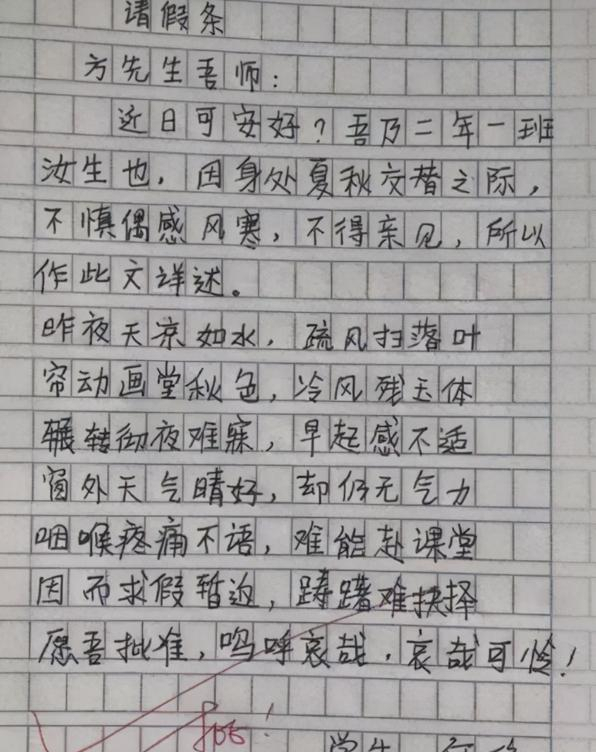 请假条
方先生吾师：
近日可安好？吾乃二年一班
汝生也，因身处夏秋交替之际，
不慎偶感风寒，不得亲见，所以
作此文详述。
昨夜天凉如水，疏风扫落叶
帘动画堂秋色，冷风残玉体
辗转彻夜难寐，早起感不适
窗外天气晴好，却仍无气力
咽喉疼痛不语，难能赴课堂
因而求假暂返，踌躇难抉择
愿吾批准，呜呼哀哉，哀哉可怜！
学生